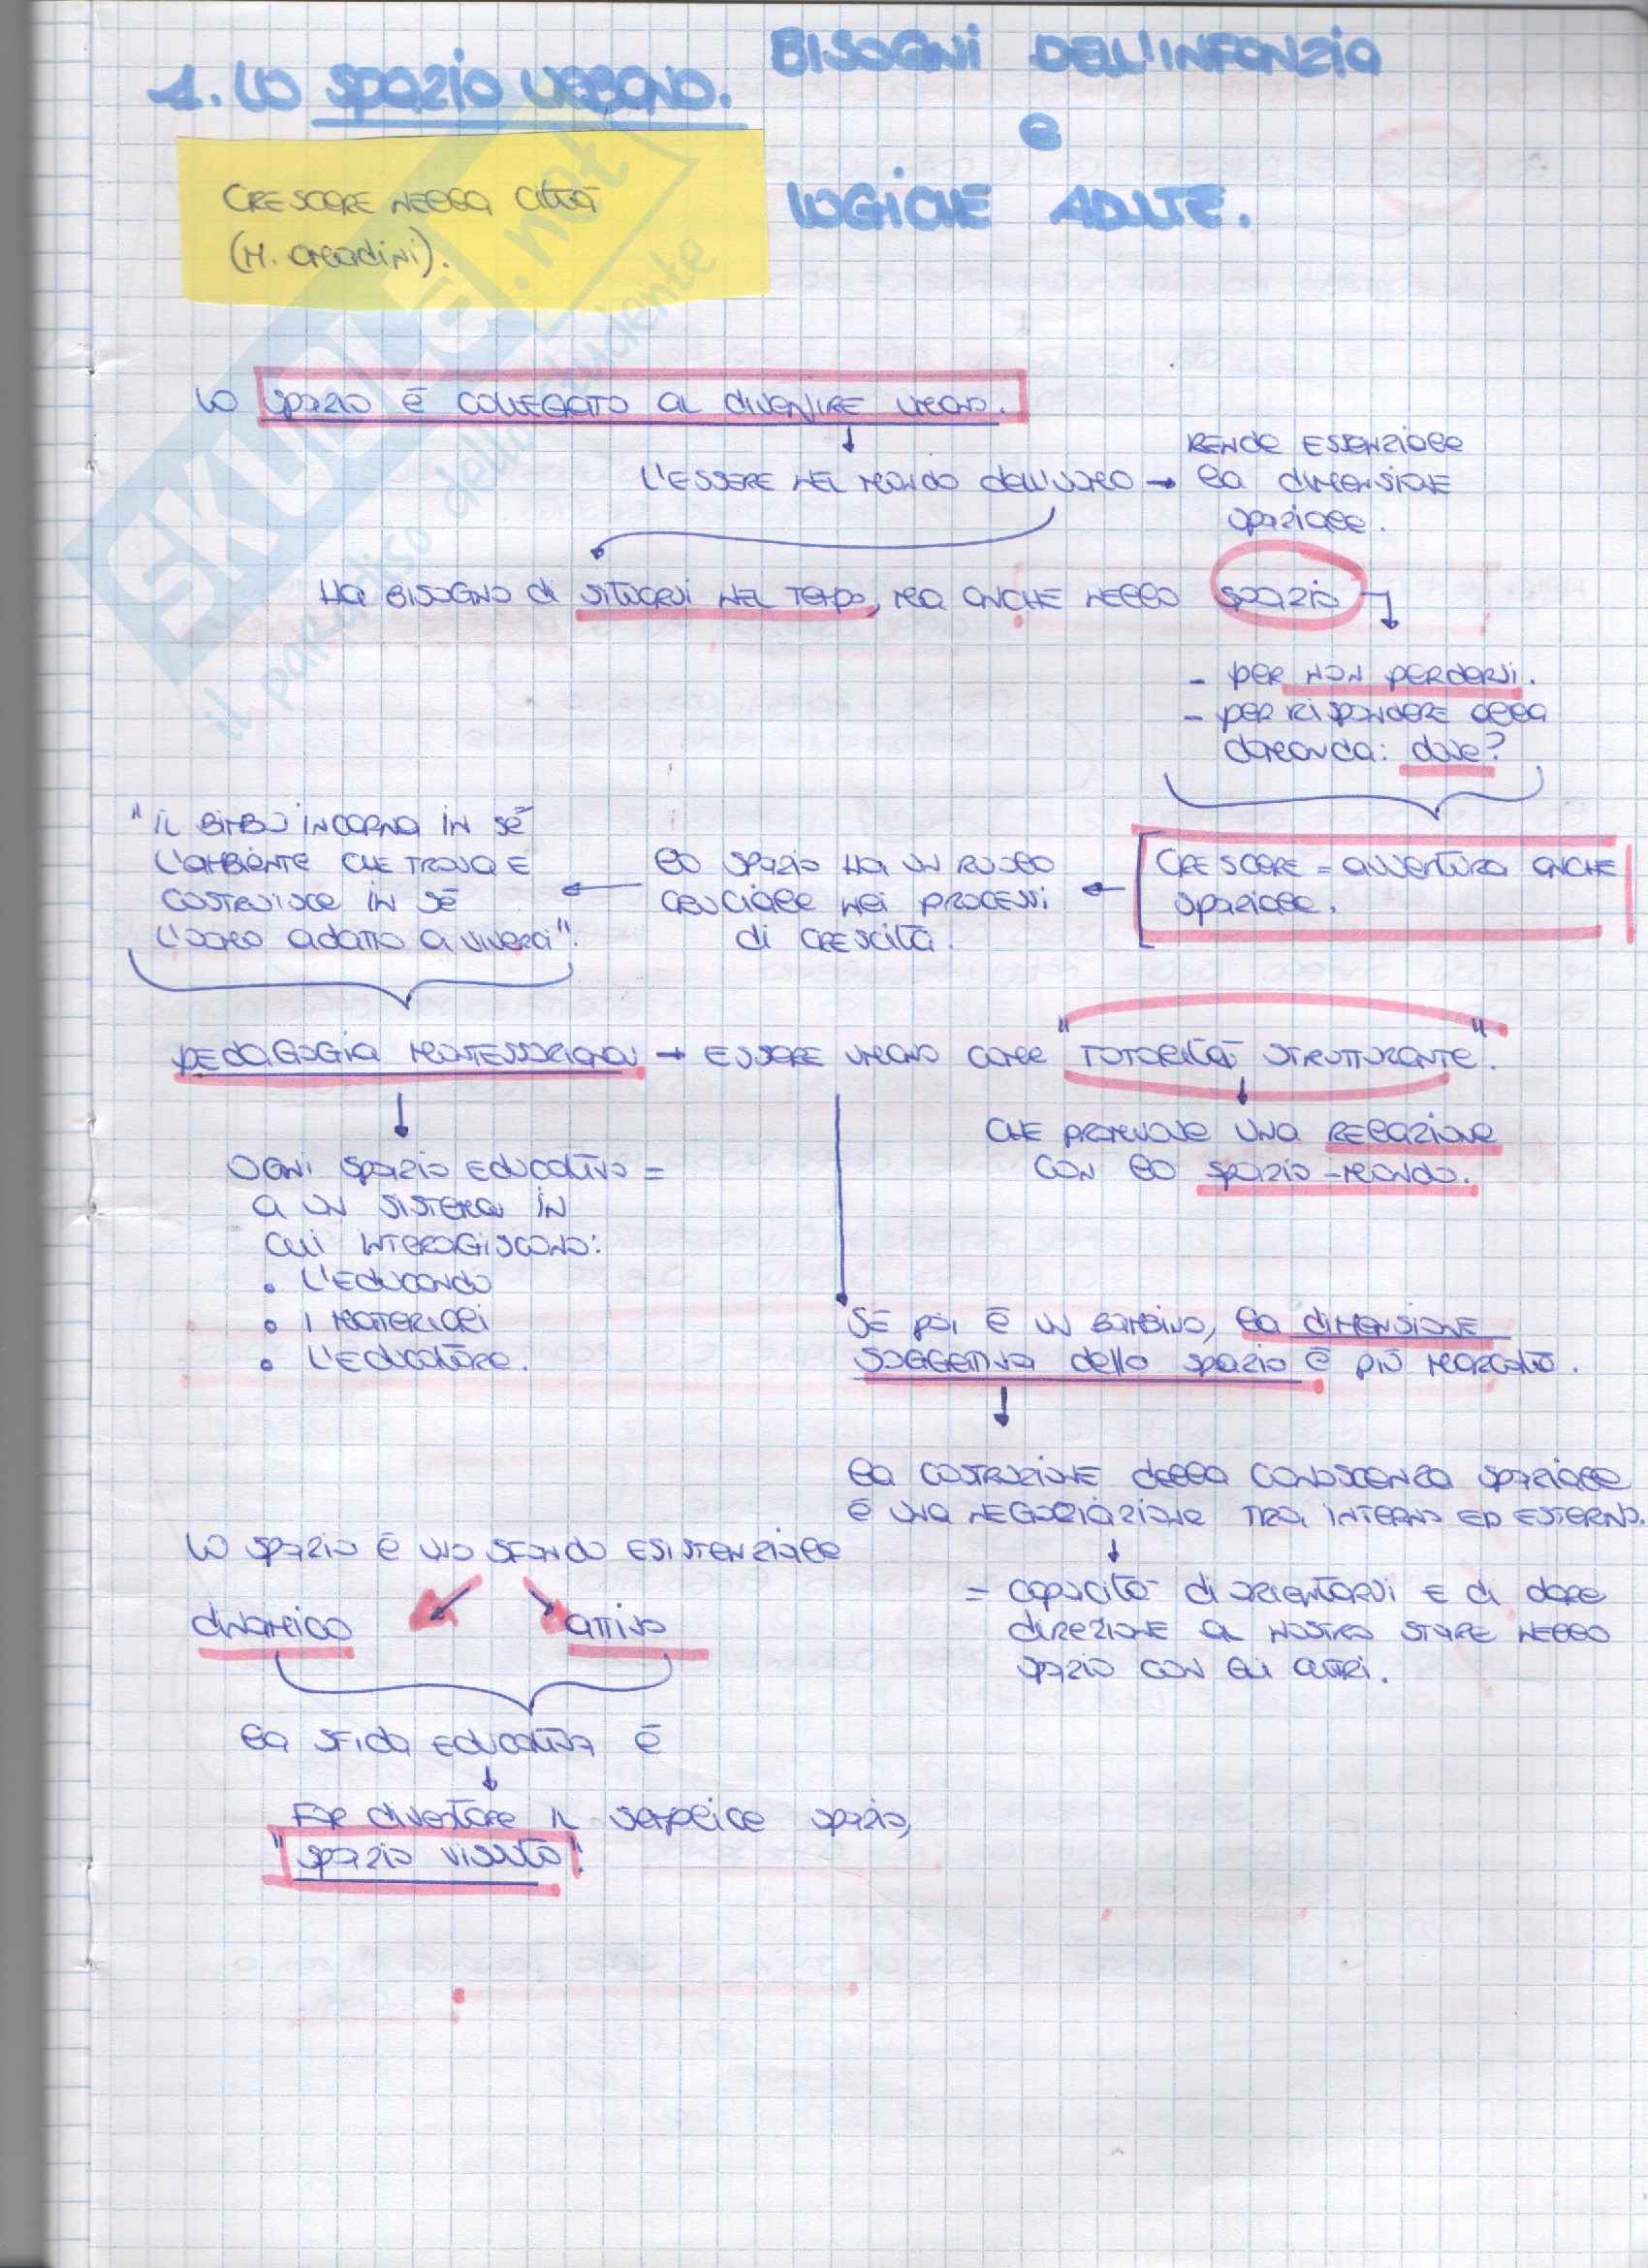 1. LO SPAZIO URBANO.
BISOGNI DELL'INFANZIA
e
LOGICHE ADULTE.
CRESCERE NELLA CITTÀ
(M. Amadini).
LO SPAZIO È COLLEGATO AL DIVENIRE UMANO.
L'ESSERE NEL MONDO dell'UOMO →
RENDE ESSENZIALE
la DIMENSIONE
SPAZIALE.
HA BISOGNO di SITUARSI NEL TEMPO, MA ANCHE NELLO SPAZIO
- PER NON PERDERSI.
- PER RISPONDERE alla
domanda: dove?
CRESCERE = avventura ANCHE
SPAZIALE.
lo SPAZIO HA UN RUOLO
CRUCIALE NEI PROCESSI
di CRESCITA.
"IL BIMBO INCARNA IN SÉ
L'AMBIENTE CHE TROVA E
COSTRUISCE IN SÉ
L'UOMO adatto a viverci".
PEDAGOGIA MONTESSORIANA → ESSERE UMANO come "TOTALITÀ STRUTTURANTE".
CHE PROMUOVE UNA RELAZIONE
CON LO SPAZIO-MONDO.
OGNI SPAZIO EDUCATIVO =
A UN SISTEMA IN
CUI INTERAGISCONO:
• L'EDUCANDO
• I MATERIALI
• L'EDUCATORE.
SE poi È UN BAMBINO, la DIMENSIONE
SOGGETTIVA dello spazio È PIÙ MARCATA.
la COSTRUZIONE della CONOSCENZA SPAZIALE
È UNA NEGOZIAZIONE TRA INTERNO ED ESTERNO.
= CAPACITÀ di orientarsi E di dare
direzione al nostro STARE NELLO
SPAZIO CON GLI ALTRI.
LO SPAZIO È UNO SFONDO ESISTENZIALE
dinamico
attivo
la SFIDA EDUCATIVA È
FAR diventare IL semplice spazio,
"SPAZIO VISSUTO".
SKUOLA.net
il paradiso dello studente